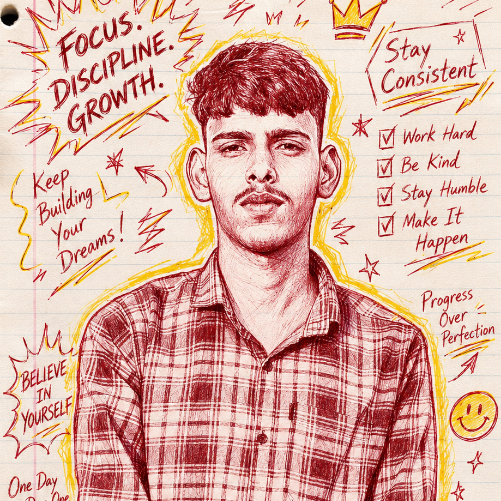 FOCUS.
DISCIPLINE.
GROWTH.
Stay
Consistent
Work Hard
Be Kind
Stay Humble
Make It
Happen
Keep
Building
Your
Dreams!
Progress
Over
Perfection
BELIEVE
IN
YOURSELF
One Day
One